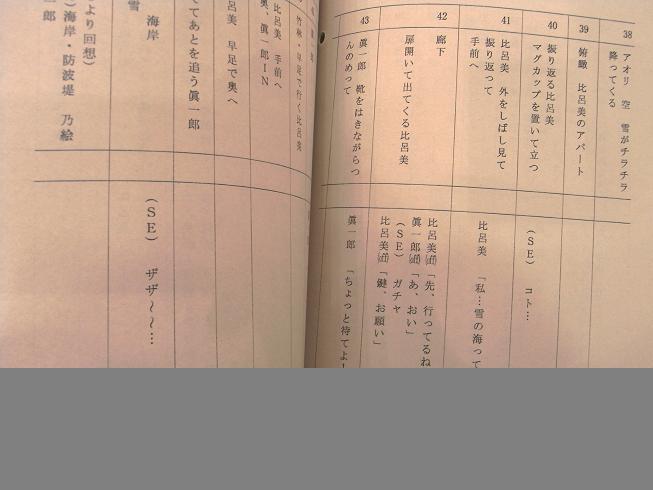 38
アオリ 空 雪がチラチラ
降ってくる
39
俯瞰 比呂美のアパート
40
振り返る比呂美
マグカップを置いて立つ
(SE) コト…
41
比呂美 外をしばし見て
振り返って
手前へ
比呂美 「私…雪の海って
42
廊下
扉開いて出てくる比呂美
比呂美(off)「先、行ってるね
眞一郎(off)「あ、おい」
(SE) ガチャ
比呂美(off)「鍵、お願い」
43
眞一郎 靴をはきながらつ
んのめって
眞一郎 「ちょっと待てよ!
竹林・早足で行く比呂美
比呂美 手前へ
奥、眞一郎IN
呂美 早足で奥へ
てあとを追う眞一郎
海岸
雪
(SE) ザザ~~…
より回想)
)海岸・防波堤 乃絵
一郎